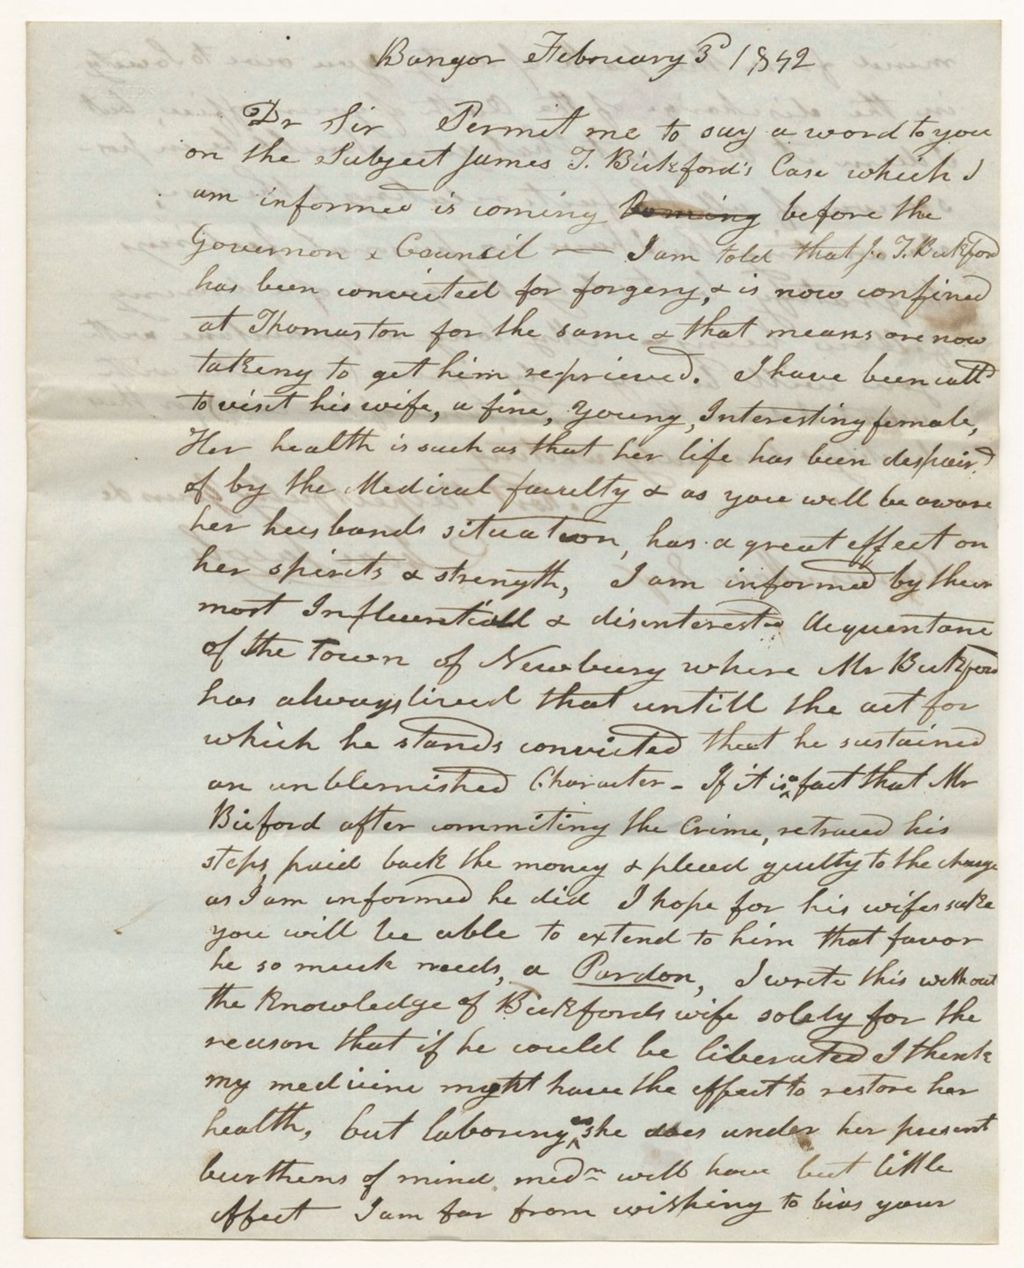 Bangor February 3d 1842
Dr Sir Permit me to say a word to you
on the Subject James T. Bickford's Case which I
am informed is coming Comeing before the
Governor & Council — I am told that J. T. Bickford
has been convicted for forgery, & is now confined
at Thomaston for the same & that means are now
takeing to get him reprieved. I have been calld
to visit his wife, a fine, Young, Interesting female,
Her health is such as that her life has been despaird
of by the Medical faculty & as you will be aware
her husbands situation, has a great effect on
her spirits & strength, I am informed by their
most Influentiall & disinterested Acquentanc
of the Town of Newbury where Mr Bickford
has always lived that untill the act for
which he stands convicted that he sustained
an unblemished Character - If it is a fact that Mr
Bicford after commiting the Crime, retraced his
steps, paid back the money & pleed guilty to the charge
as I am informed he did I hope for his wifes sake
you will be able to extend to him that favor
he so much needs, a Pardon, I write this without
the knowledge of Bickfords wife solely for the
reason that if he could be liberated I think
my medicine might have the effect to restore her
health, but laboreng as she does under her present
burthens of mind, medn will have but little
effect I am far from wishing to bias your